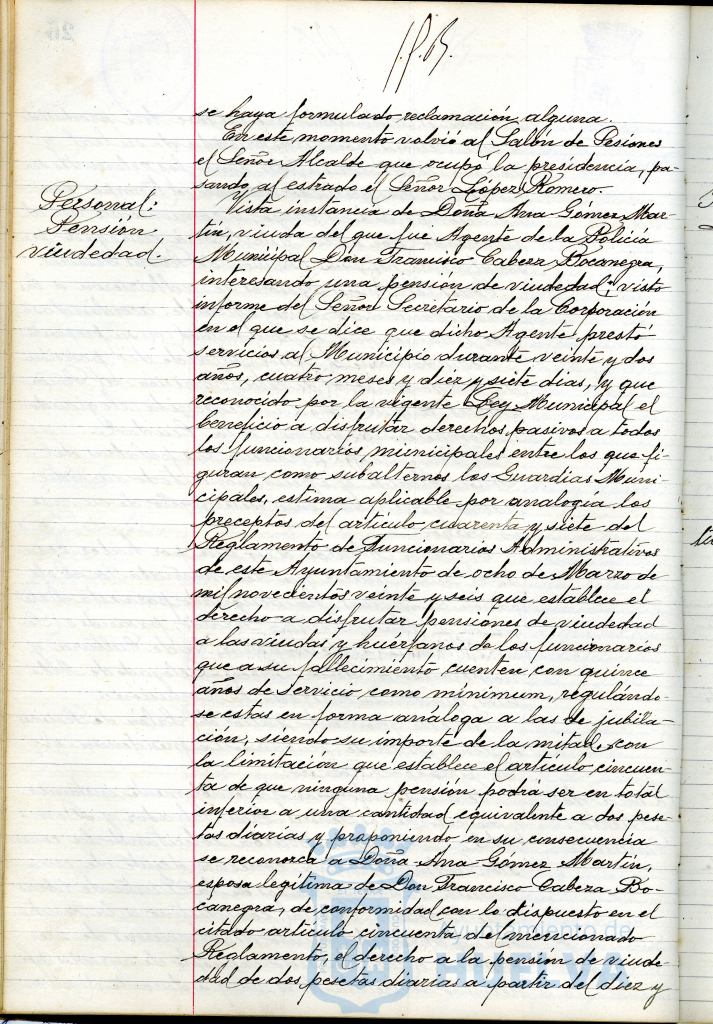 se haya formulado reclamación alguna.
En este momento volvió al Salón de Sesiones
el Señor Alcalde que ocupó la presidencia, pa-
sando al estrado el Señor López Romero.
Personal:
Pensión
viudedad.
Vista instancia de Doña Ana Gómez Mar-
tín, viuda del que fue Agente de la Policía
Municipal Don Francisco Cabeza Bocanegra,
interesando una pensión de viudedad; visto
informe del Señor Secretario de la Corporación
en el que se dice que dicho Agente prestó
servicios al Municipio durante veinte y dos
años, cuatro meses y diez y siete dias, y que
reconocido por la vigente Ley Municipal el
beneficio a disfrutar derechos pasivos a todos
los funcionarios municipales entre los que fi-
guran como subalternos los Guardias Muni-
cipales, estima aplicable por analogía los
preceptos del artículo cuarenta y siete del
Reglamento de Funcionarios Administrativos
de este Ayuntamiento de ocho de Marzo de
mil novecientos veinte y seis que establece el
derecho a disfrutar pensiones de viudedad
a las viudas y huérfanos de los funcionarios
que a su fallecimiento cuenten con quince
años de servicio como minimum, regulándo-
se estas en forma análoga a las de jubila-
ción, siendo su importe de la mitad, con
la limitación que establece el artículo cincuen-
ta de que ninguna pensión podrá ser en total
inferior a una cantidad equivalente a dos pese-
tas diarias y proponiendo en su consecuencia
se reconozca a Doña Ana Gómez Martín,
esposa legítima de Don Francisco Cabeza Bo-
canegra, de conformidad con lo dispuesto en el
citado artículo cincuenta de mencionado
Reglamento, el derecho a la pensión de viude-
dad de dos pesetas diarias a partir del diez y
Ayuntamiento de
HUELVA